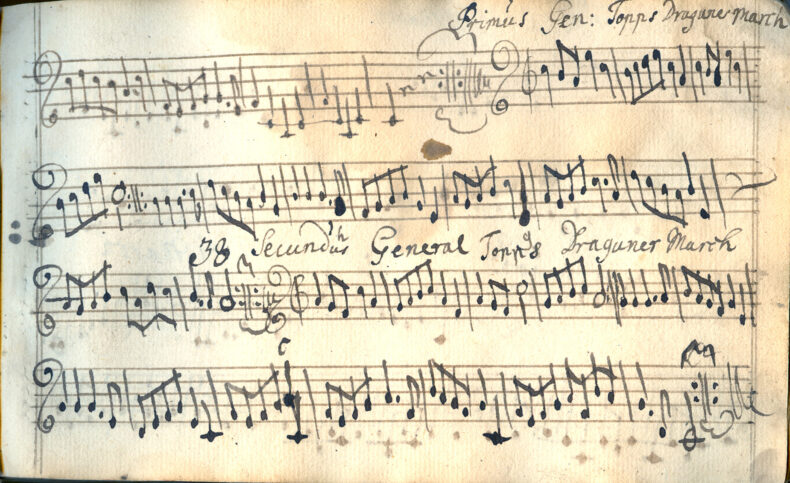 Primus Gen: Topps Draguner March
38 Secundus General Topp's Draguner March